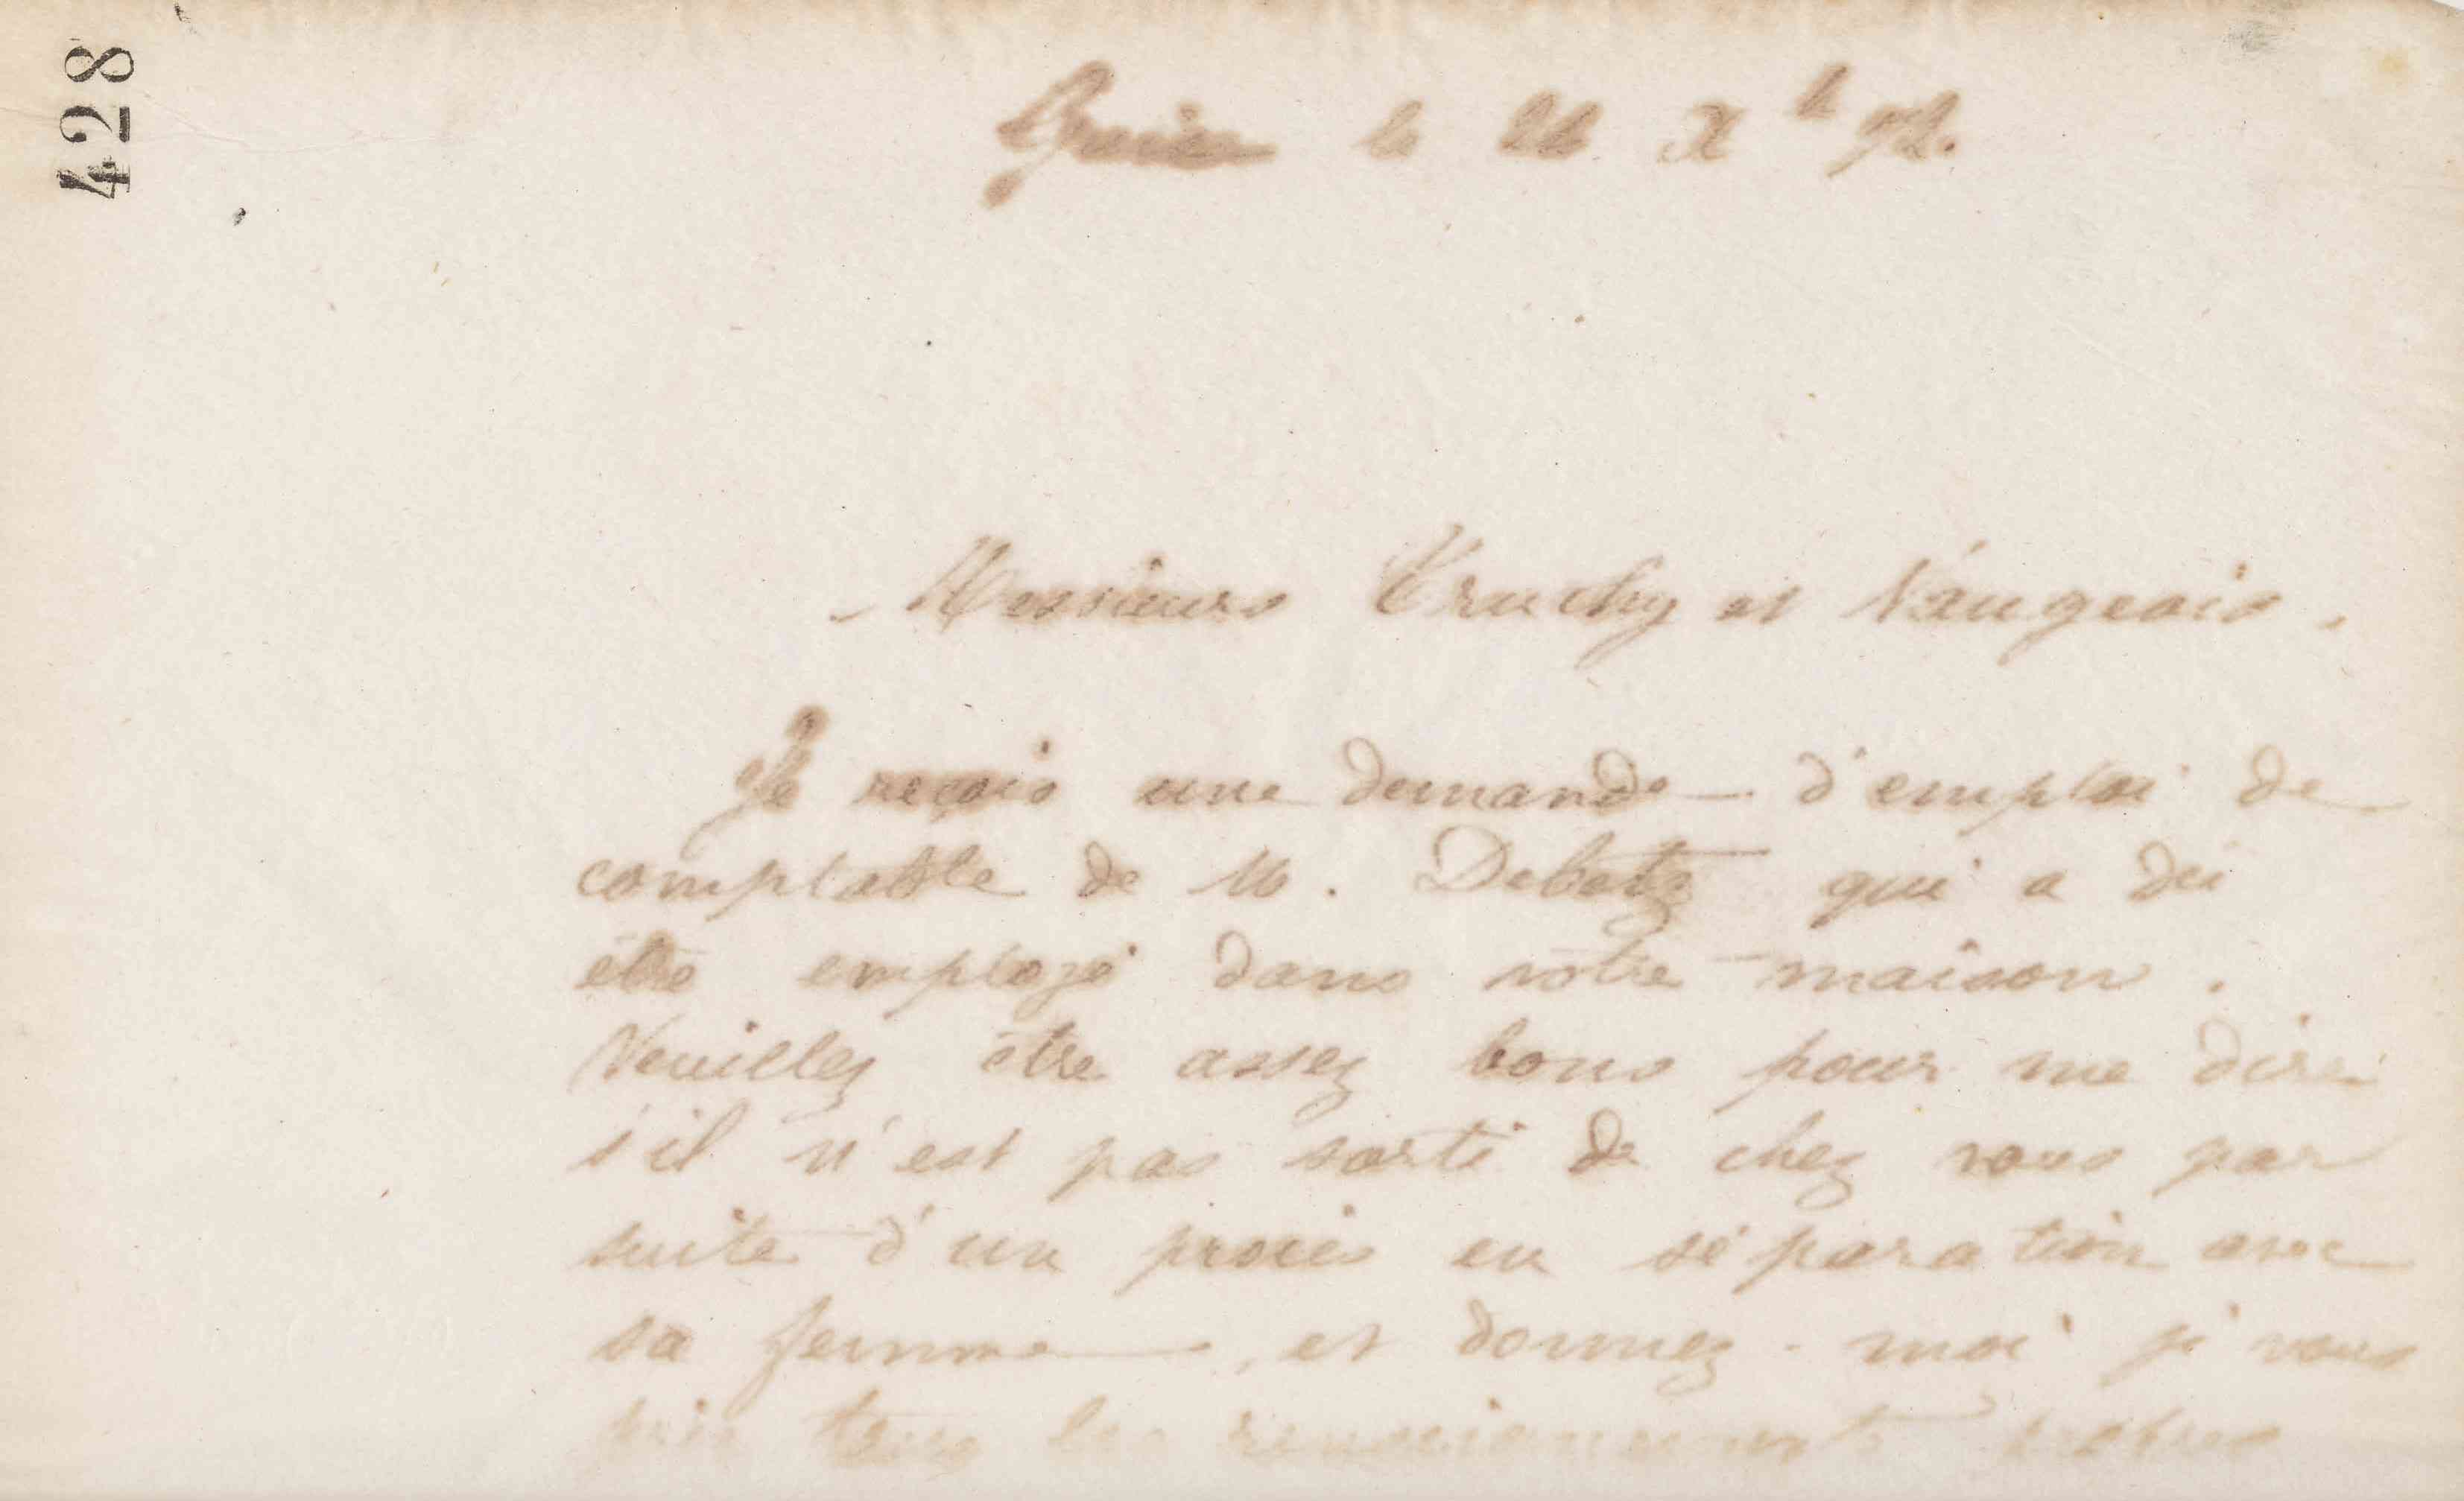 428
Guise le 26 Xb 72.
Messieurs Truchy et Vaugeois,
Je reçois une demande d'emploi de
comptable de M. Debatz qui a dû
être employé dans votre maison.
Veuillez être assez bons pour me dire
s'il n'est pas sorti de chez vous par
suite d'un procès en séparation avec
sa femme, et donnez-moi je vous
prie tous les renseignements